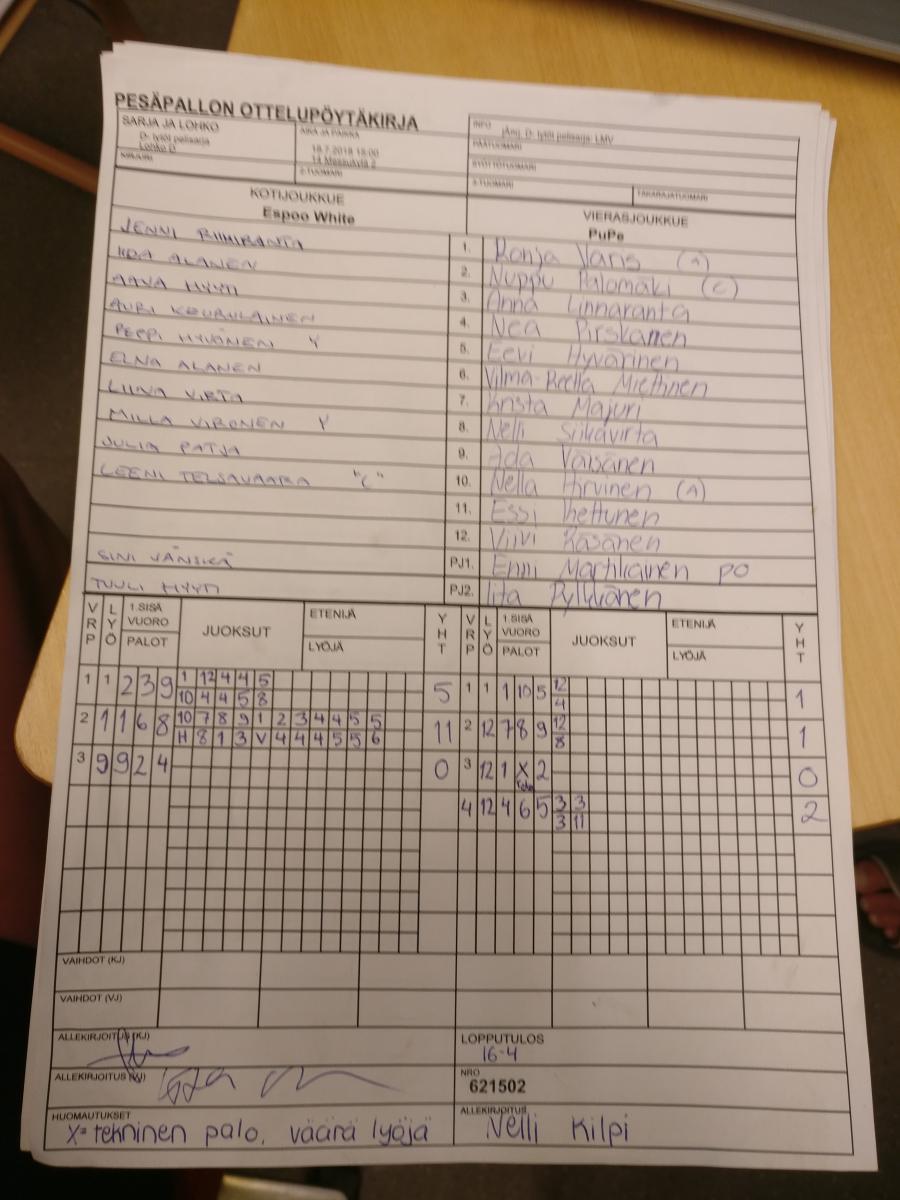 PESÄPALLON OTTELUPÖYTÄKIRJA
SARJA JA LOHKO
D- tytöt pelisarja
Lohko D
KIRJURI
AIKA JA PAIKKA
18.7.2018 18:00
14 Messukylä 2
2-TUOMARI
INFO
jÄnij, D- tytöt pelisarja: LMV
PÄÄTUOMARI
SYÖTTÖTUOMARI
3-TUOMARI
TAKARAJATUOMARI
KOTIJOUKKUE
Espoo White
VIERASJOUKKUE
PuPe
JENNI RIIHIRANTA 1. Ronja Varis (A)
IIDA ALANEN 2. Nuppu Palomäki (C)
AAVA HYYTI 3. Anna Linnaranta
AURI KEURULAINEN 4. Nea Pirskanen
PEPPI HYVÖNEN Y 5. Eevi Hyvärinen
ELNA ALANEN 6. Vilma-Reella Miettinen
LIINA VIRTA 7. Krista Majuri
MILLA VIRONEN Y 8. Nelli Siikavirta
JULIA PATJA 9. Ada Väisänen
LEENI TELSAVAARA "C" 10. Nella Hirvinen (A)
11. Essi Kettunen
12. Viivi Räsänen
SINI VÄNSKÄ PJ1. Enni Martikainen PO
TUULI HYYTI PJ2. Iita Pylkkänen
VRP LYÖ 1.SISÄ VUORO PALOT JUOKSUT ETENIJÄ LYÖJÄ YHT VRP LYÖ 1.SISÄ VUORO PALOT JUOKSUT ETENIJÄ LYÖJÄ YHT
1 1 2 3 9 1 12 4 4 5 5 1 1 1 10 5 12 1
10 4 4 5 8 4
2 11 1 6 8 10 7 8 9 1 2 3 4 4 5 5 11 2 12 7 8 9 12 1
H 8 1 3 V 4 4 4 5 5 6 8
3 9 9 2 4 0 3 12 1 X 2 0
4 12 4 6 5 3 3 2
3 11
VAIHDOT (KJ)
VAIHDOT (VJ)
ALLEKIRJOITUS (KJ)
LOPPUTULOS
16-4
ALLEKIRJOITUS (VJ)
NRO
621502
HUOMAUTUKSET
X= tekninen palo, väärä lyöjä
ALLEKIRJOITUS
Nelli Kilpi